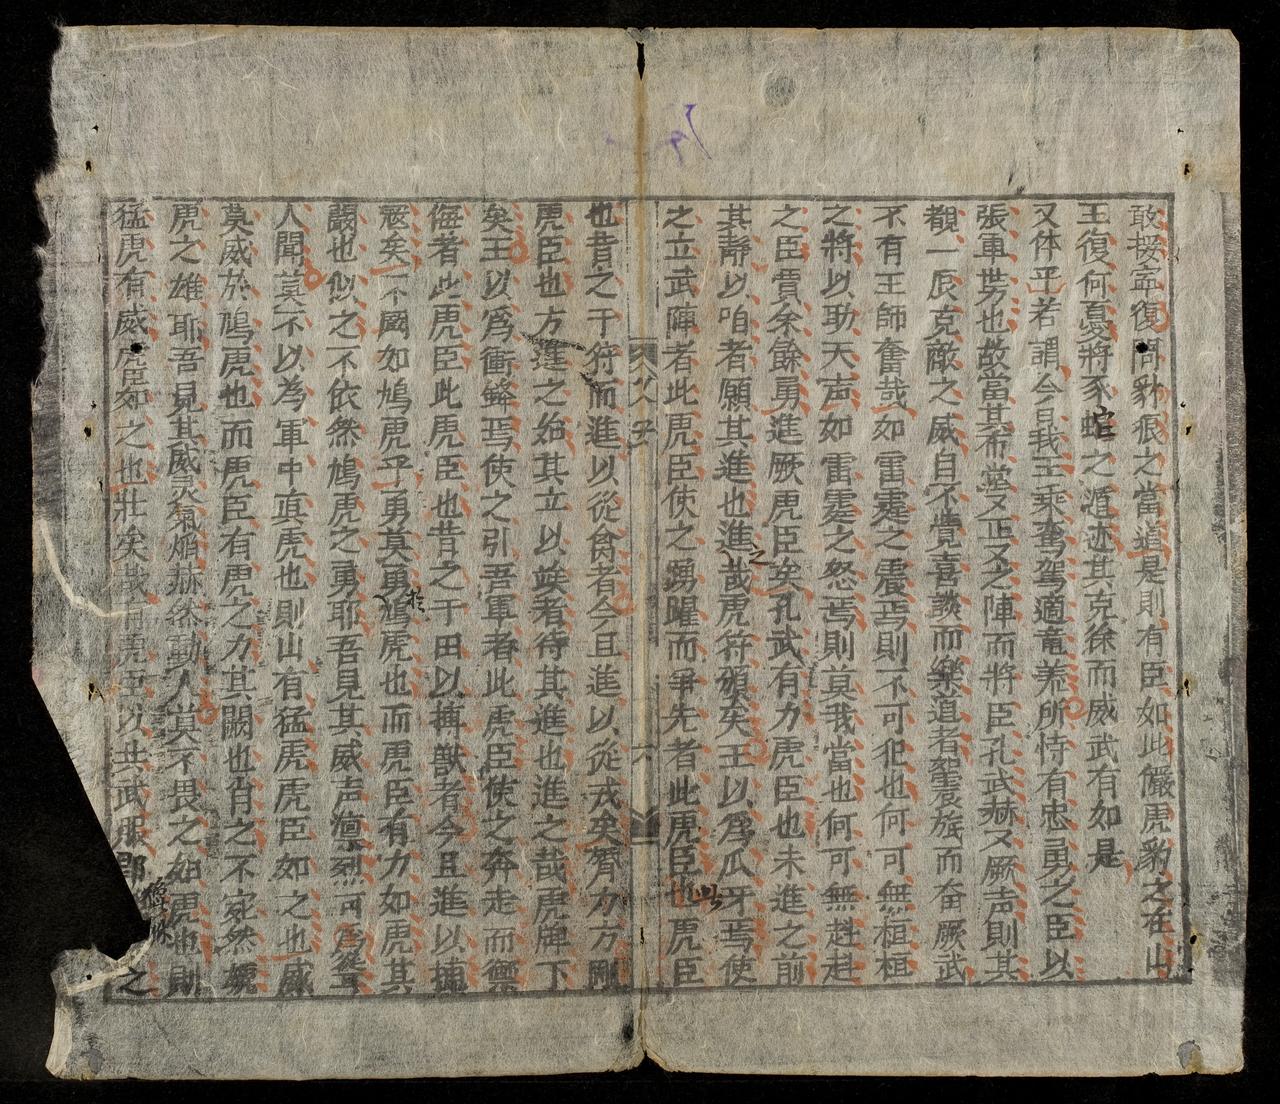 敢援寧復問豺狼之當道是則有臣如此儼虎豹之在山
王復何憂將豕蛇之遁迹其克徐而威武有如是
又体乎若謂今日我王乘鸞駕適竜羕所恃有忠勇之臣以
張軍势也故當其布堂又正又之陣而將臣孔武赫又厥声則其
覩一辰克敵之威自不覺喜談而樂道者鞏袞旅而奋厥武
不有王師奮哉如雷霆之震焉則不可犯也何可無桓桓
之將以助天声如雷霆之怒焉則莫我當也何可無赳赳
之臣賈余餘勇進厥虎臣矣孔武有力虎臣也未進之前
其靜以咱者願其進也進之哉虎符頒矣王以為爪牙焉使
之立武陣者此虎臣使之踴躍而爭先者此虎臣也虎臣
此
六
也昔之于狩而進以從禽者今且進以從戎矣膂力方剛
虎臣也方進之始其立以竢者待其進也進之哉虎牌下
矣王以為衝鋒焉使之引吾軍者此虎臣使之奔走而禦
侮者此虎臣此虎臣也昔之于田以搏獸者今且進以擒
寇矣不闞如鳩虎乎勇莫勇於鳩虎也而虎臣有力如虎其
闞也似之不依然鳩虎之勇耶吾見其威声烈烈可為
人聞莫不以為軍中真虎也則山有猛虎虎臣如之也威
莫威於鳩虎也而虎臣有虎之力其闞也肖之不宛然虓
虎之雄耶吾見其威灵氣焰赫然動人莫不畏之如虎也則
猛虎有威虎臣如之也壯矣哉有虎臣以共武服
之